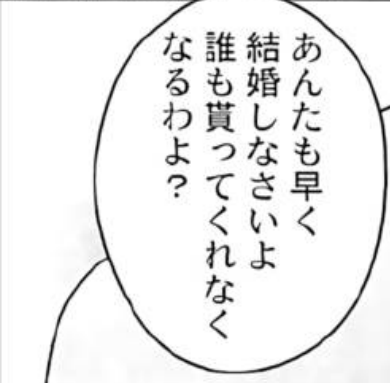 あんたも早く
結婚しなさいよ
誰も貰ってくれなく
なるわよ？